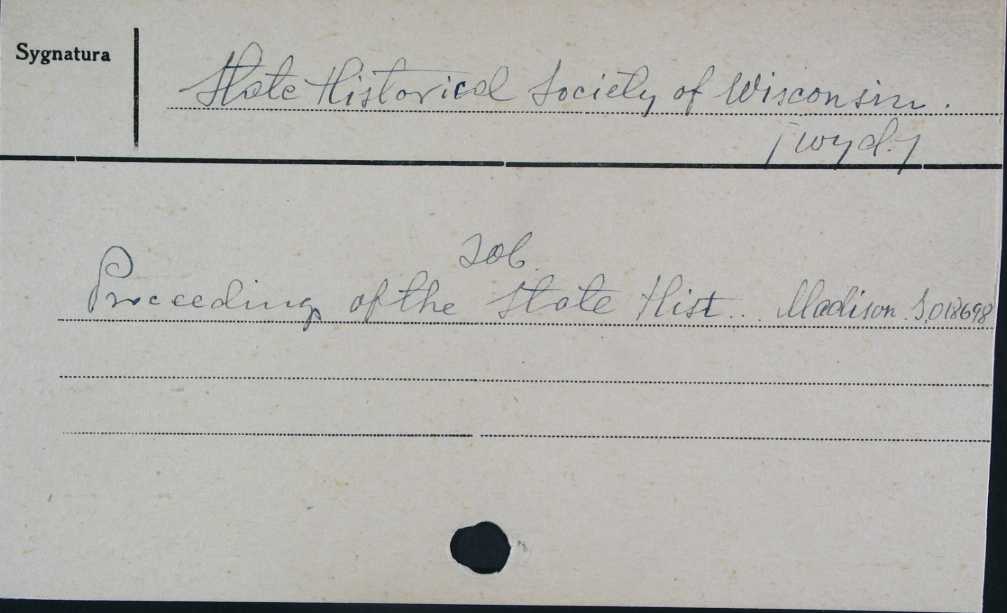 Sygnatura
State Historical Society of Wisconsin.
[wyd.]
Zob.
Proceedings of the State Hist... Madison S.018698